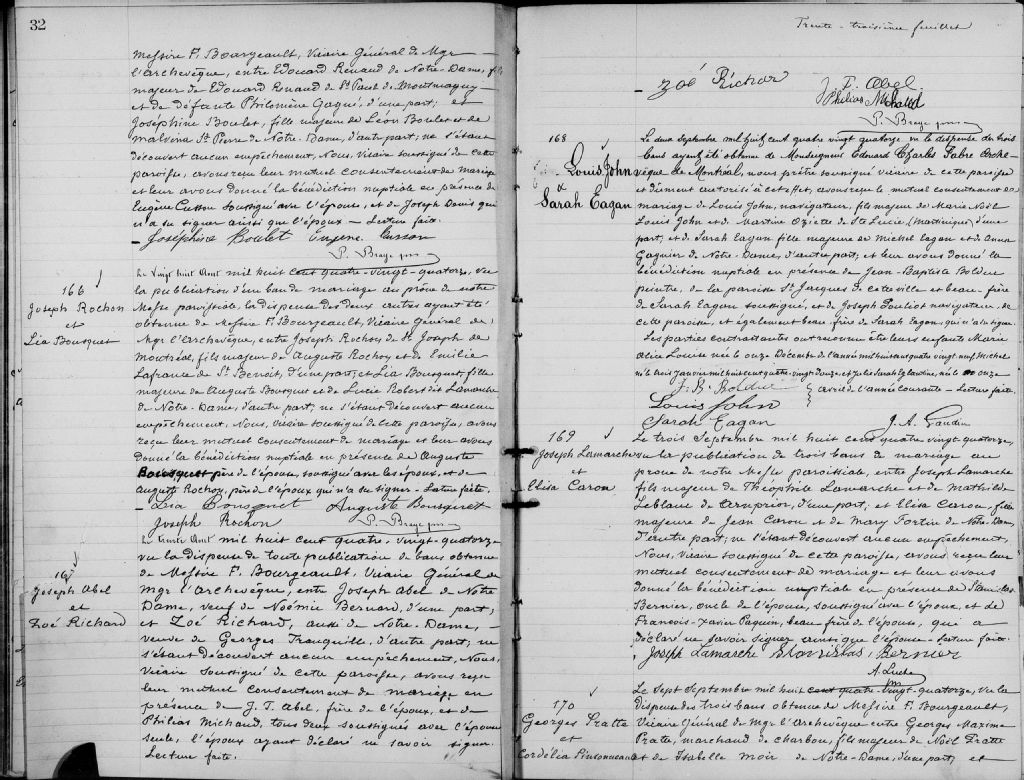 32
Messire F. Bourgeault, Vicaire Général de Mgr
l'Archevêque, entre Edouard Renaud de Notre-Dame, fils
majeur de Edouard Renaud de St Paul de Montmagny
et de défunte Philomène Gagné, d'une part; et
Joséphine Boulet, fille majeure de Léon Boulet et de
Malvina St Pierre de Notre-Dame, d'autre part; ne s'étant
découvert aucun empêchement, Nous, Vicaire soussigné de cette
paroisse, avons reçu leur mutuel consentement de mariage
et leur avons donné la bénédiction nuptiale en présence de
Eugène Cusson soussigné avec l'épouse, et de Joseph Denis qui
n'a su signer ainsi que l'époux — Lecture faite.
— Joséphine Boulet Eugène Cusson
P. Braye ptre
166
Joseph Rochon
et
Léa Bousquet
Le vingt huit Août mil huit cent quatre-vingt-quatorze, vu
la publication d'un ban de mariage au prône de notre
Messe paroissiale, la dispense des deux autres ayant été
obtenue de Messire F. Bourgeault, Vicaire Général de
Mgr l'Archevêque, entre Joseph Rochon de St Joseph de
Montréal, fils majeur de Auguste Rochon et de Emilie
Lafrance de St Benoit, d'une part, et Léa Bousquet, fille
majeure de Auguste Bousquet et de Lucie Robert dit Lamouche
de Notre-Dame, d'autre part, ne s'étant découvert aucun
empêchement, Nous, Vicaire soussigné de cette paroisse, avons
reçu leur mutuel consentement de mariage et leur avons
donné la bénédiction nuptiale en présence de Auguste
Bousquet père de l'épouse, soussigné avec les époux, et de
Auguste Rochon, père de l'époux qui n'a su signer — Lecture faite.
— Léa Bousquet Auguste Bousquet
Joseph Rochon P. Braye ptre
167
Joseph Abel
et
Zoé Richard
Le trente Août mil huit cent quatre-vingt-quatorze
vu la dispense de toute publication de bans obtenue
de Messire F. Bourgeault, Vicaire Général de
Mgr l'Archevêque, entre Joseph Abel de Notre
Dame, veuf de Noémie Bernard, d'une part;
et Zoé Richard, aussi de Notre-Dame,
veuve de Georges Tranquille, d'autre part, ne
s'étant découvert aucun empêchement, Nous,
Vicaire soussigné de cette paroisse, avons reçu
leur mutuel consentement de mariage en
présence de J. T. Abel, frère de l'époux, et de
Philias Michaud, tous deux soussignés avec l'épouse
seule, l'époux ayant déclaré ne savoir signer.
Lecture faite.
Trente-troisième feuillet
— Zoé Richar J. T. Abel
Philias Michaud
P. Braye ptre
168
Louis John
et
Sarah Eagan
Le deux Septembre mil huit cent quatre vingt quatorze vu la dispense de trois
bans ayant été obtenue de Monseigneur Edouard Charles Fabre Arche-
vêque de Montréal, nous prêtre soussigné vicaire de cette paroisse
et dûment autorisé à cet effet, avons reçu le mutuel consentement de
mariage de Louis John, navigateur, fils majeur de Marie Noël
Louis John et de Martine Oziette de Ste Lucie, (Martinique) d'une
part, et de Sarah Eagan fille majeure de Michel Eagan et de Anna
Gagnier de Notre-Dame, d'autre part; et leur avons donné la
bénédiction nuptiale en présence de Jean-Baptiste Bolduc
peintre, de la paroisse St Jacques de cette ville et beau-frère
de Sarah Eagan soussigné, et de Joseph Pouliot navigateur, de
cette paroisse, et également beau-frère de Sarah Eagan, qui n'a su signer.
Les parties contractantes ont reconnu être leurs enfants Marie
Alice Louise née le onze Décembre de l'année mil huit cent quatre vingt neuf, Michel
né le trois Janvier mil huit cent quatre-vingt-douze, et Julie Sarah Eglantine, née le onze
avril de l'année courante — Lecture faite.
J. B. Bolduc
Louis John
Sarah Eagan J. A. Gaudin
169
Joseph Lamarche
et
Elisa Caron
Le trois Septembre mil huit cent quatre-vingt-quatorze,
vu la publication de trois bans de mariage au
prône de notre Messe paroissiale, entre Joseph Lamarche
fils majeur de Théophile Lamarche et de Mathilde
Leblanc de Arnprior, d'une part, et Elisa Caron, fille
majeure de Jean Caron et de Mary Fortin de Notre-Dame,
d'autre part; ne s'étant découvert aucun empêchement,
Nous, Vicaire soussigné de cette paroisse, avons reçu leur
mutuel consentement de mariage et leur avons
donné la bénédiction nuptiale en présence de Stanislas
Bernier, oncle de l'épouse, soussigné avec l'époux, et de
Francois-Xavier Paquin, beau-frère de l'épouse, qui a
déclaré ne savoir signer ainsi que l'épouse — Lecture faite.
Joseph Lamarche Stanislas Bernier
ptre
170
Georges Pratte
et
Cordélia Pinsonneault
Le Sept Septembre mil huit cent quatre-vingt-quatorze, vu la
dispense des trois bans obtenue de Messire F. Bourgeault,
Vicaire Général de Mgr l'Archevêque entre Georges Maxime
Pratte, marchand de charbon, fils majeur de Noël Pratte
et de Isabelle Moir de Notre-Dame, d'une part; et